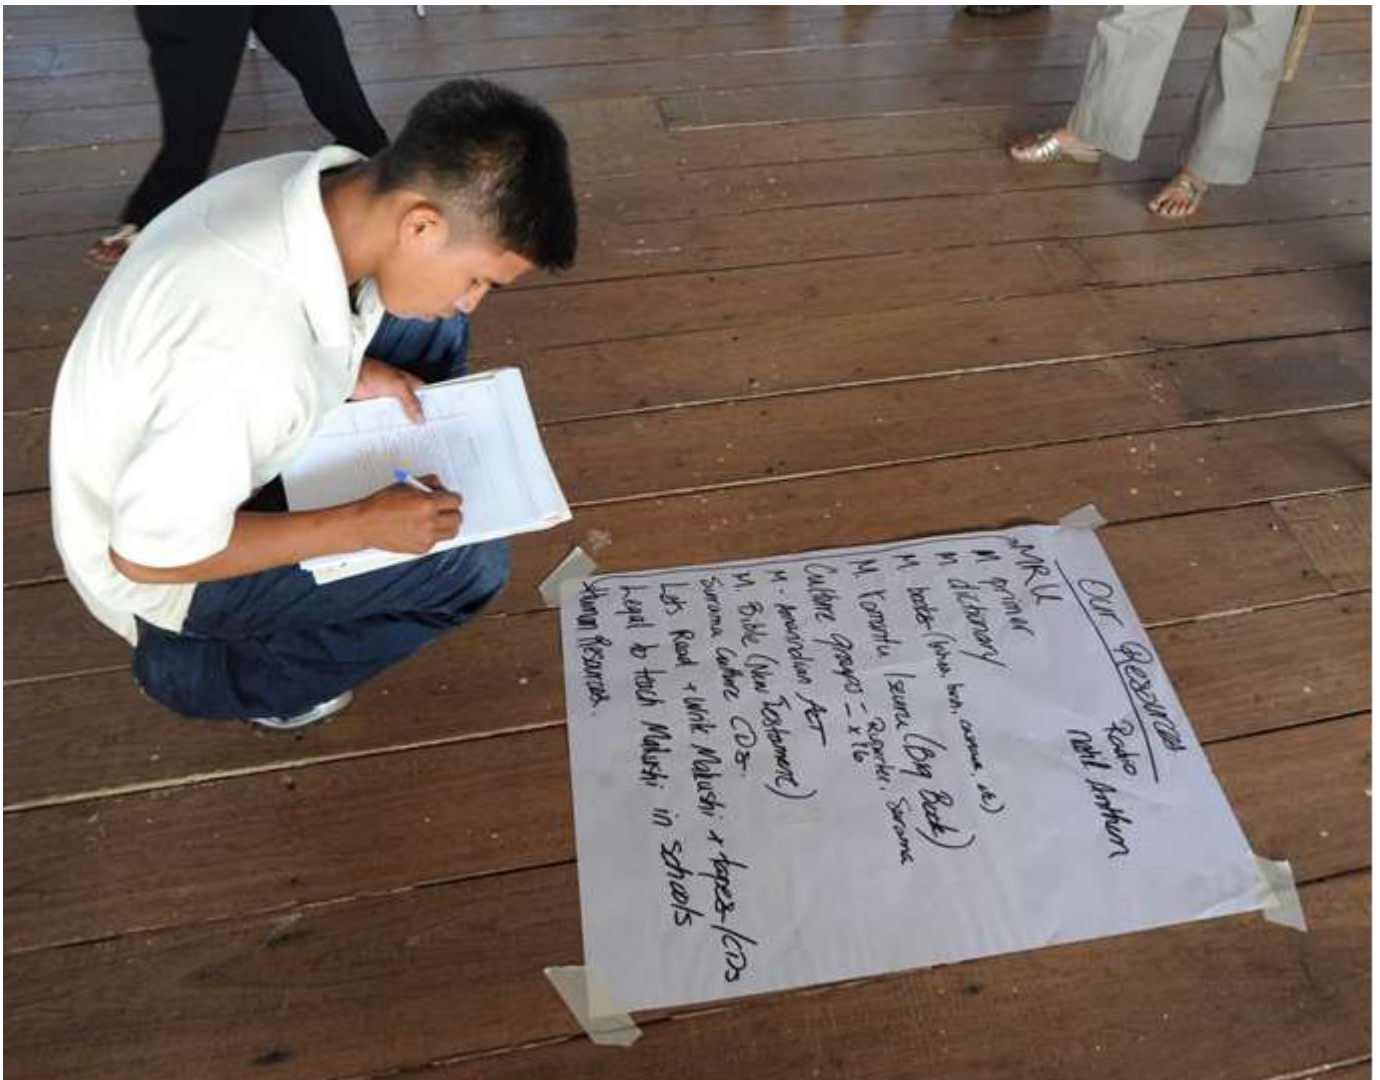 Our Resources
Radio
Natl Anthem
MRU
M primer
M dictionary
M. books (birds,
M. (Big Book)
Culture groups = x 16
Reporter, Surama
M - Amerindian Act
M. Bible (New Testament)
Surama Culture CDs.
Lets Read + Write Makushi + tapes/CDs
Legal to teach Makushi in schools
Human Resources.